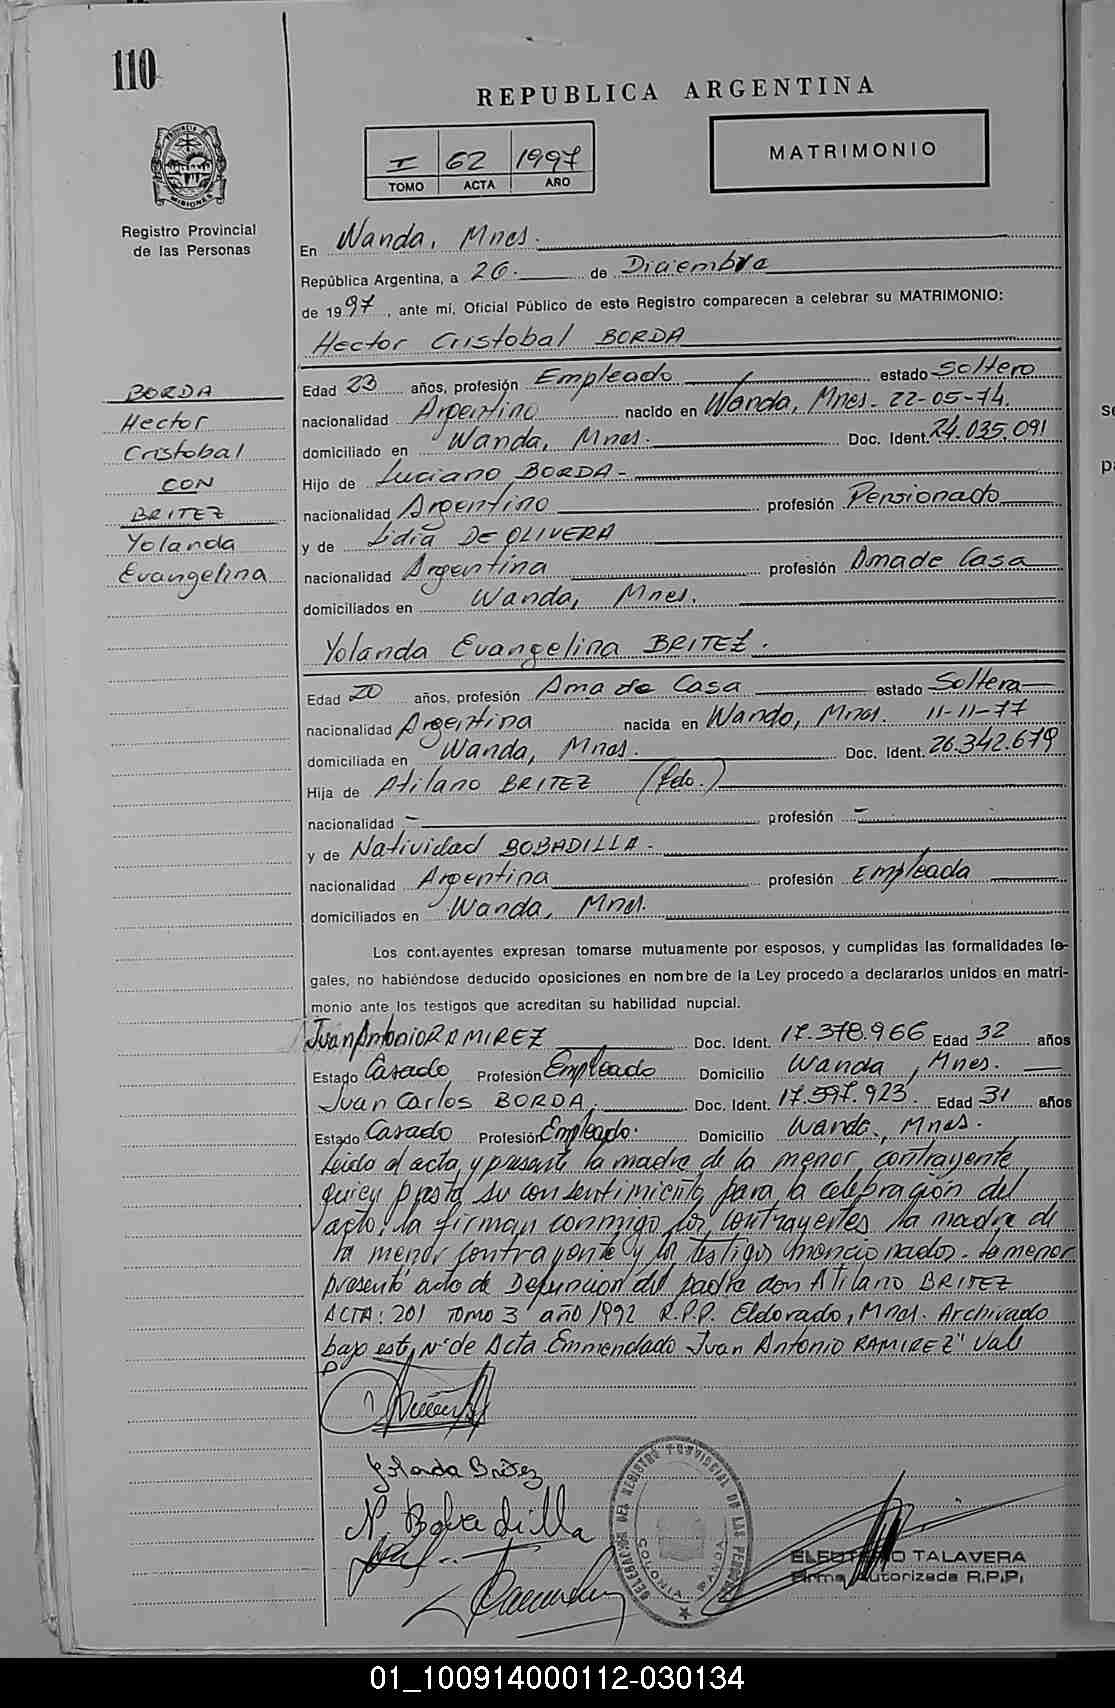 110
REPUBLICA ARGENTINA
I 62 1997
TOMO ACTA AÑO
MATRIMONIO
PROVINCIA DE MISIONES
Registro Provincial
de las Personas
En Wanda, Mnes.
República Argentina, a 26. de Diciembre
de 1997, ante mi, Oficial Público de este Registro comparecen a celebrar su MATRIMONIO:
Hector Cristobal BORDA
BORDA
Hector
Cristobal
CON
BRITEZ
Yolanda
Evangelina
Edad 23 años, profesión Empleado estado Soltero
nacionalidad Argentino nacido en Wanda, Mnes. 22-05-74.
domiciliado en Wanda, Mnes. Doc. Ident. 24.035.091
Hijo de Luciano BORDA-
nacionalidad Argentino profesión Pensionado
y de Lidia DE OLIVERA
nacionalidad Argentina profesión Ama de Casa
domiciliados en Wanda, Mnes.
Yolanda Evangelina BRITEZ.
Edad 20 años, profesión Ama de Casa estado Soltera
nacionalidad Argentina nacida en Wanda, Mnes. 11-11-77
domiciliada en Wanda, Mnes. Doc. Ident. 26.342.679
Hija de Atilano BRITEZ (fdo.)
nacionalidad - profesión -
y de Natividad BOBADILLA-
nacionalidad Argentina profesión Empleada
domiciliados en Wanda, Mnes.
Los cont.ayentes expresan tomarse mutuamente por esposos, y cumplidas las formalidades le-
gales, no habiéndose deducido oposiciones en nombre de la Ley procedo a declararlos unidos en matri-
monio ante los testigos que acreditan su habilidad nupcial.
Juan Antonio RAMIREZ Doc. Ident. 17.378.966 Edad 32 años
Estado Casado Profesión Empleado Domicilio Wanda, Mnes.
Juan Carlos BORDA. Doc. Ident. 17.597.923. Edad 31 años
Estado Casado Profesión Empleado. Domicilio Wanda, Mnes.
Leído el acta, y presente la madre de la menor contrayente
quien presta su consentimiento para la celebración del
acto, la firman conmigo los contrayentes la madre de
la menor contrayente y los testigos mencionados. La menor
presentó acta de Defunción del padre don Atilano BRITEZ
ACTA: 201 Tomo 3 año 1992 R.P.P. Eldorado, Mnes. Archivado
bajo este Nº de Acta. Enmendado Juan Antonio RAMIREZ" Vale
Yolanda Britez
N. Bobadilla
DELEGACION DEL REGISTRO PROVINCIAL DE LAS PERSONAS
COLONIA WANDA
ELEUTERIO TALAVERA
Firma Autorizada R.P.P.
01_100914000112-030134